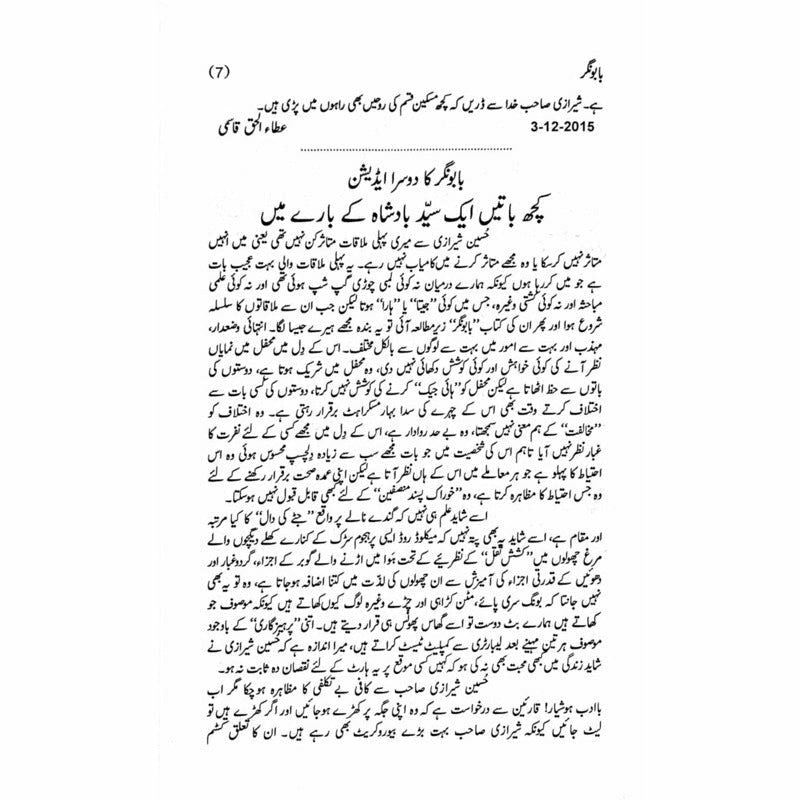 بابونگر
(7)
ہے۔ شیرازی صاحب خدا سے ڈریں کہ کچھ مسکین قسم کی روحیں بھی راہوں میں پڑی ہیں۔
3-12-2015
عطاء الحق قاسمی
بابونگر کا دوسرا ایڈیشن
کچھ باتیں ایک سیّد بادشاہ کے بارے میں
حُسین شیرازی سے میری پہلی ملاقات متاثر کن نہیں تھی یعنی میں انہیں
متاثر نہیں کرسکا یا وہ مجھے متاثر کرنے میں کامیاب نہیں رہے۔ یہ پہلی ملاقات والی بہت عجیب بات
ہے جو میں کررہا ہوں کیونکہ ہمارے درمیان نہ کوئی لمبی چوڑی گپ شپ ہوئی تھی اور نہ کوئی علمی
مباحثہ اور نہ کوئی کشتی وغیرہ، جس میں کوئی ’’جیتا‘‘ یا ’’ہارا‘‘ ہوتا لیکن جب ان سے ملاقاتوں کا سلسلہ
شروع ہوا اور پھر ان کی کتاب ’’بابونگر‘‘ زیرِمطالعہ آئی تو یہ بندہ مجھے ہیرے جیسا لگا۔ انتہائی وضعدار،
مہذب اور بہت سے امور میں بہت سے لوگوں سے بالکل مختلف۔ اس کے دِل میں محفل میں نمایاں
نظر آنے کی کوئی خواہش اور کوئی کوشش دکھائی نہیں دی، وہ محفل میں شریک ہوتا ہے، دوستوں کی
باتوں سے حظ اٹھاتا ہے لیکن محفل کو ’’ہائی جیک‘‘ کرنے کی کوشش نہیں کرتا، دوستوں کی کسی بات سے
اختلاف کرتے وقت بھی اس کے چہرے کی سدا بہار مسکراہٹ برقرار رہتی ہے۔ وہ اختلاف کو
’’مخالفت‘‘ کے ہم معنی نہیں سمجھتا، وہ بے حد روادار ہے، اس کے دِل میں مجھے کسی کے لئے نفرت کا
غبار نظر نہیں آیا تاہم اس کی شخصیت میں جو بات مجھے سب سے زیادہ دلچسپ محسوس ہوئی وہ اس
احتیاط کا پہلو ہے جو ہر معاملے میں اس کے ہاں نظر آتا ہے لیکن اپنی عمدہ صحت برقرار رکھنے کے لئے
وہ جس احتیاط کا مظاہرہ کرتا ہے، وہ ’’خوراک پسند منصفین‘‘ کے لئے کبھی قابل قبول نہیں ہوسکتا۔
اسے شاید علم ہی نہیں کہ گندے نالے پر واقع ’’جٹے کی دال‘‘ کا کیا مرتبہ
اور مقام ہے، اسے شاید یہ بھی پتہ نہیں کہ میکلوڈ روڈ ایسی پرہجوم سڑک کے کنارے کھلے دیگچوں والے
مرغ چھولوں میں ’’کششِ ثقل‘‘ کے نظریئے کے تحت ہَوا میں اڑنے والے گوبر کے اجزاء، گردوغبار اور
دھوئیں کے قدرتی اجزاء کی آمیزش سے ان چھولوں کی لذّت میں کتنا اضافہ ہوجاتا ہے، وہ تو یہ بھی
نہیں جانتا کہ بونگ سری پائے، مٹن کڑاہی اور چڑے وغیرہ لوگ کیوں کھاتے ہیں کیونکہ موصوف جو
کھاتے ہیں ہمارے بٹ دوست تو اسے گھاس پھونس ہی قرار دیتے ہیں۔ اتنی ’’پرہیزگاری‘‘ کے باوجود
موصوف ہر تین مہینے بعد لیبارٹری سے کمپلیٹ ٹیسٹ کراتے ہیں، میرا اندازہ ہے کہ حُسین شیرازی نے
شاید زندگی میں کبھی محبت بھی نہ کی ہو کہ کہیں کسی موقع پر یہ ہارٹ کے لئے نقصان دہ ثابت نہ ہو۔
حُسین شیرازی صاحب سے کافی بے تکلفی کا مظاہرہ ہوچکا مگر اب
باادب ہوشیار! قارئین سے درخواست ہے کہ وہ اپنی جگہ پر کھڑے ہوجائیں اور اگر کھڑے ہیں تو
لیٹ جائیں کیونکہ شیرازی صاحب بہت بڑے بیوروکریٹ بھی رہے ہیں۔ ان کا تعلق کسٹم